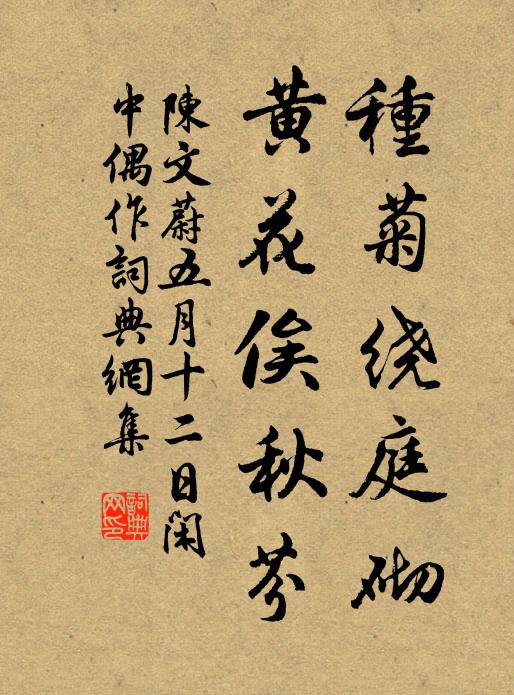 種菊绕庭砌
黄花俟秋芬
陳文蔚五月十二日閑
中偶作詞典網集
詞典網印